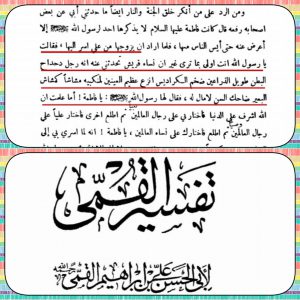 ومن الرد على من أنكر خلق الجنة والنار ايضاً ما حدثني أبي عن بعض
اصحابه رفعه قال كانت فاطمة عليها السلام لا يذكرها احد لرسول الله ﷺ إلا
أعرض عنه حتى أيس الناس منها، فلما اراد ان يزوجها من علي اسر اليها، فقالت
يا رسول الله انت اولى بما ترى غير ان نساء قريش تحدثني عنه انه رجل دحداح
البطن طويل الذراعين ضخم الكراديس انزع عظيم العينين لمنكبيه مشاشاً كمشاش
البعير ضاحك السن لا مال له، فقال لها رسول الله ﷺ: يا فاطمة! أما علمت ان
الله اشرف على الدنيا فاختارني على رجال العالمين ثم اطلع اخرى فاختار علياً على
رجال العالمين ثم اطلع فاختارك على نساء العالمين، يا فاطمة! انه لما اسري بي إلى
تفسير القمي
لأبي الحسن علي بن ابراهيم القمي رحمه الله